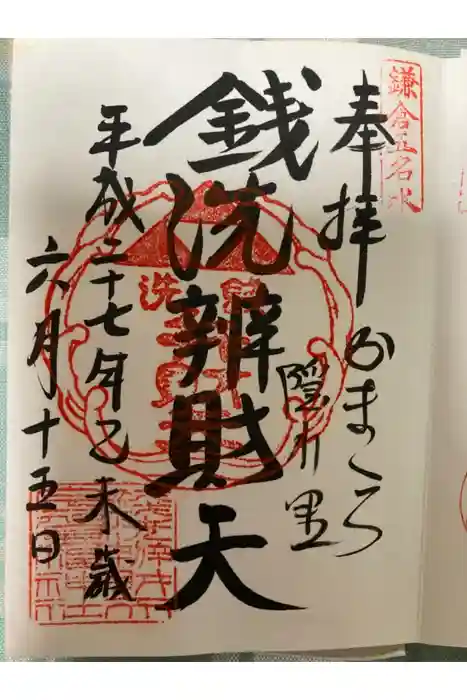 鎌倉五名水
奉拝
かまくら
隠れ里
銭洗辨財天
平成二十七年乙未歳
六月十五日